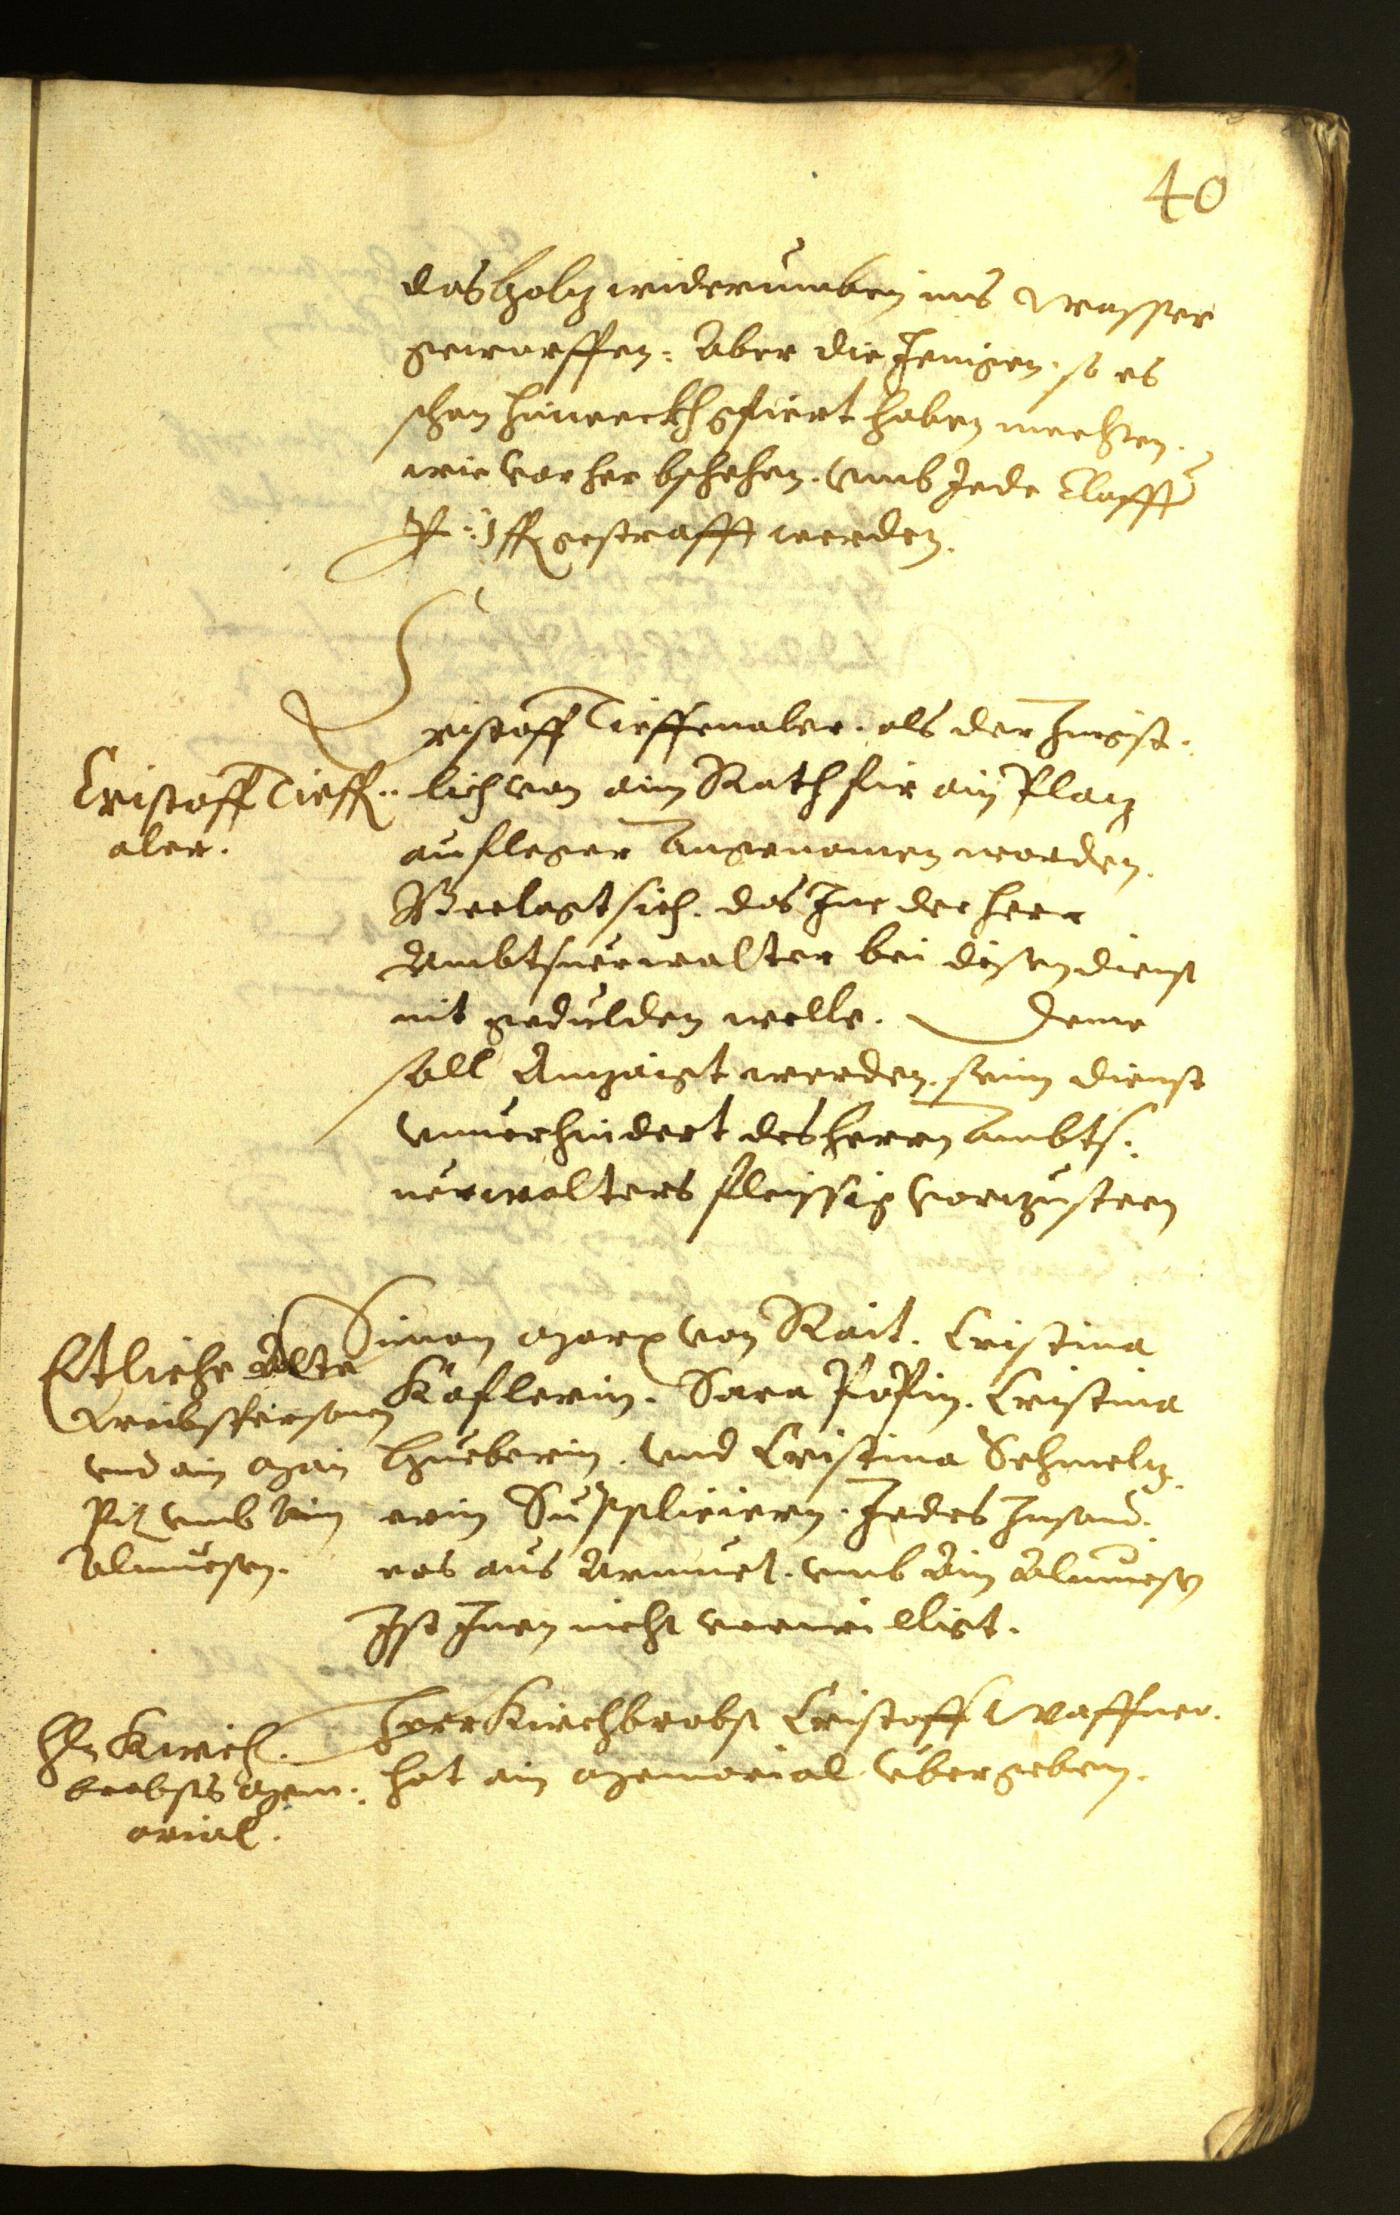 40
das holtz widerumben ins Wasser
geworffen: Aber die Jenigen, so es
schon hinweckh gfiert haben mechten.
wie vorher bschehen. vmb Jede Claffter
gestrafft werden.
Cristoff Tieffentaler. als der Jungst-
lich von aim Rath fir ain Platz
aufleger Angenomen worden.
Beclagt sich. das Ine der herr
Ambtsuerwalter bei disen dienst
nit gedulden welle. Deme
soll Anzaigt werden, seim dienst
vnuerhindert des herrn Ambts-
uerwalters fleissig vorzusteen
Cristoff Tieff-
aler.
Simon Marx von Rait. Cristina
Köflerin. Sara Popin. Cristina
Hueberin. vnd Cristina Schmeltz-
erin Suppliciern. Jedes Jnsond-
res aus Armuet. vmb Ain Almuesen
Ist Jnen nicht verwilligt.
Etliche Alte
Weibspersonen
vnd ain Man
vmb ain
Almuesen.
Herr Kirchbrobst Cristoff Waffner.
hat ain Memorial vbergeben.
Hn Kirch-
brobsts Mem-
orial.